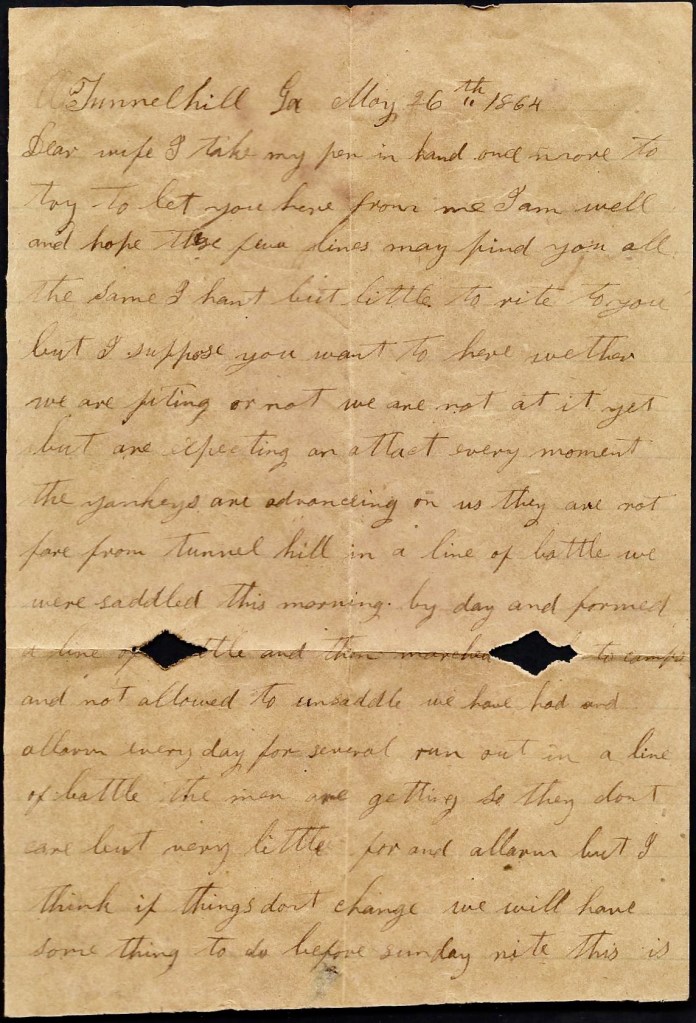 Tunnelhill Ga May 26th 1864
Dear wife I take my pen in hand once more to
try to let you here from me I am well
and hope these few lines may find you all
the same I hant but little to rite to you
but I suppose you want to here wether
we are fiting or not we are not at it yet
but are expecting an attact every moment
the yankeys are advancing on us they are not
fare from tunnel hill in a line of battle we
were saddled this morning by day and formed
a line of ttle and then marched to camps
and not allowed to unsaddle we have had and
allarm every day for several run out in a line
of battle the men are getting so they dont
care but very little for and allarm but I
think if things dont change we will have
some thing to do before sunday nite this is